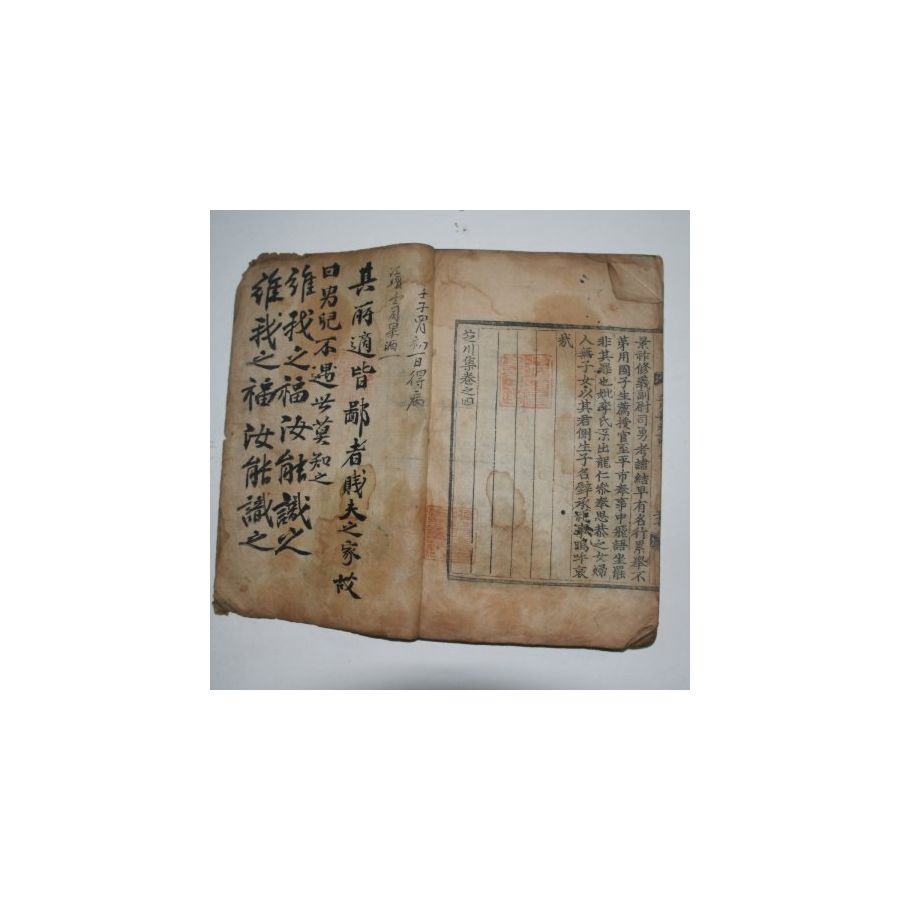 景祚修義副尉司勇考諸結早有名行累擧不
第用國子生薦授官至平市奉事中飛語坐罷
非其罪也妣李氏系出龍仁參奉思恭之女婦
人無子女以其君側生子名辭承嗚呼哀
哉
芝川集卷之四
壬子四月初一日得病
其所適皆鄙者賤夫之家故
曰男兒不遇世莫知之
維我之福汝能識之
維我之福汝能識之